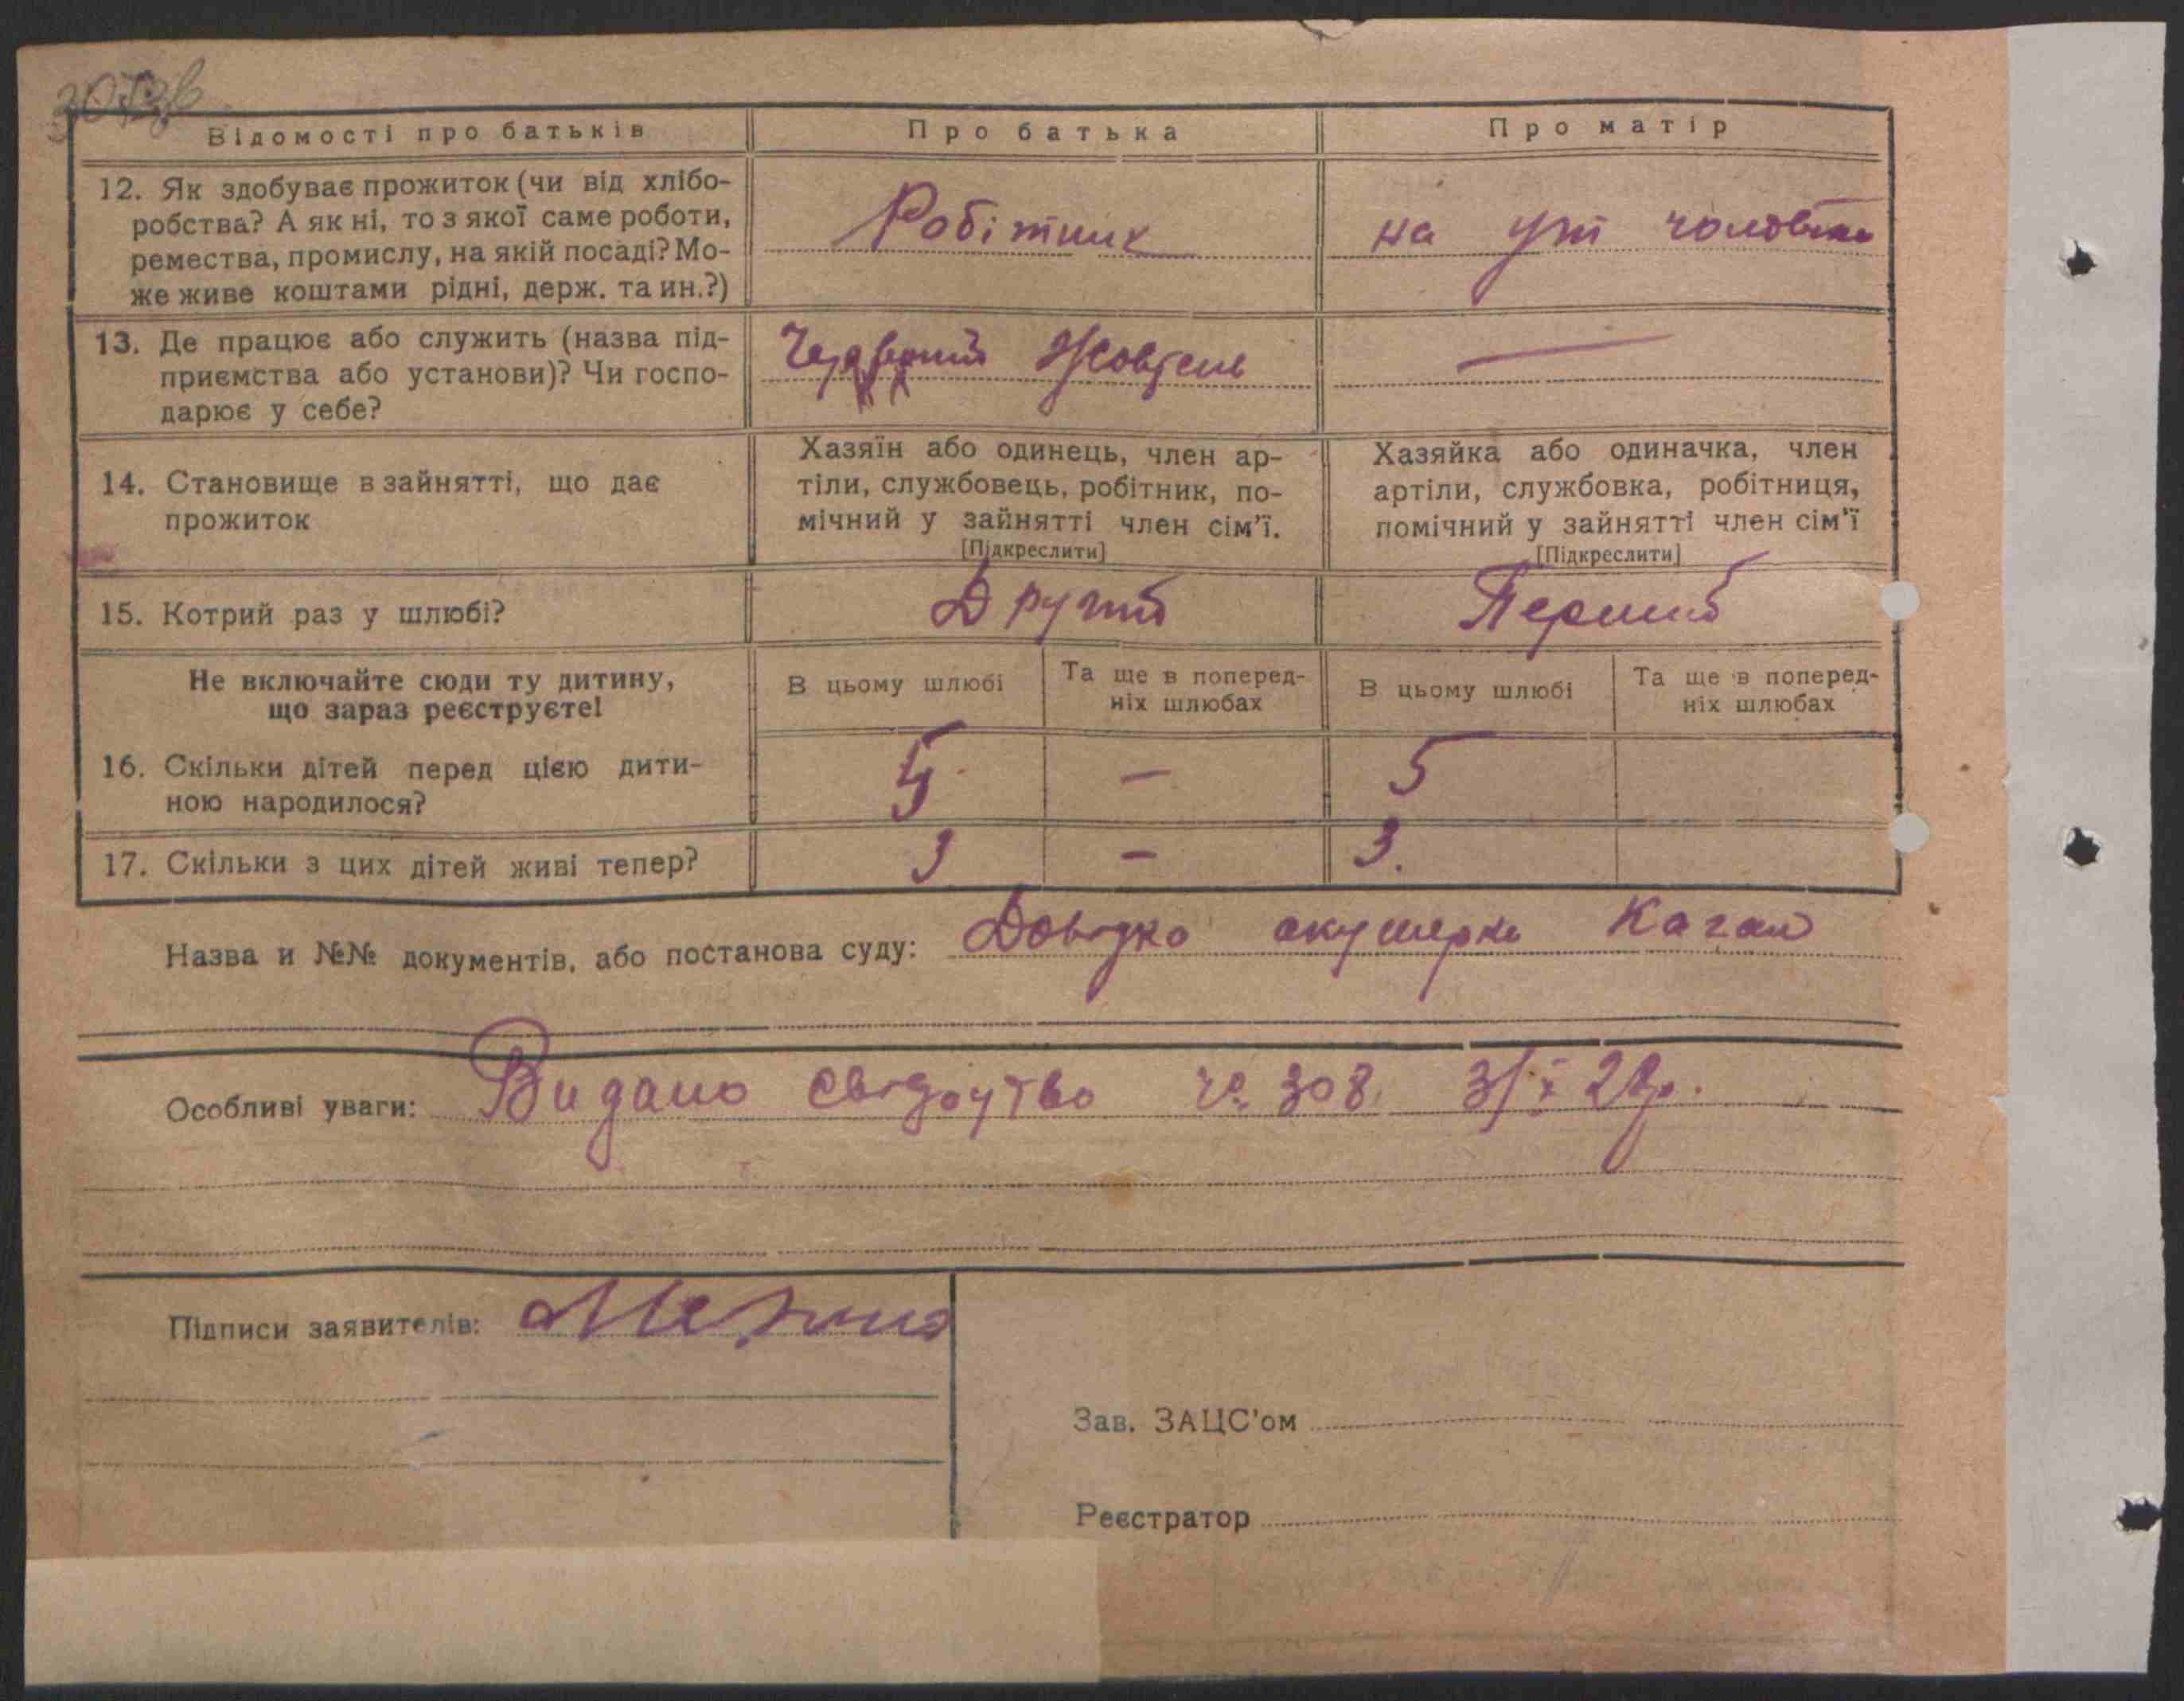 Відомості про батьків
Про батька
Про матір
12. Як здобуває прожиток (чи від хлібо-
робства? А як ні, то з якої саме роботи,
ремества, промислу, на якій посаді? Мо-
же живе коштами рідні, держ. та ин.?)
Робітник
на утт чоловіка
13. Де працює або служить (назва під-
приємства або установи)? Чи госпо-
дарює у себе?
Червоний Жовтень
—
14. Становище в зайнятті, що дає
прожиток
Хазяїн або одинець, член ар-
тіли, службовець, робітник, по-
мічний у зайнятті член сім'ї.
[Підкреслити]
Хазяйка або одиначка, член
артіли, службовка, робітниця,
помічний у зайнятті член сім'ї
[Підкреслити]
15. Котрий раз у шлюбі?
Другий
Перший
Не включайте сюди ту дитину,
що зараз реєструєте!
В цьому шлюбі
Та ще в поперед-
ніх шлюбах
В цьому шлюбі
Та ще в поперед-
ніх шлюбах
16. Скільки дітей перед цією дити-
ною народилося?
5 — 5
17. Скільки з цих дітей живі тепер?
3 — 3.
Назва и №№ документів, або постанова суду: Довідка акушерки Каган
Особливі уваги: Видано свідоцтво № 308
Підписи заявителів:
Зав. ЗАЦС'ом
Реєстратор